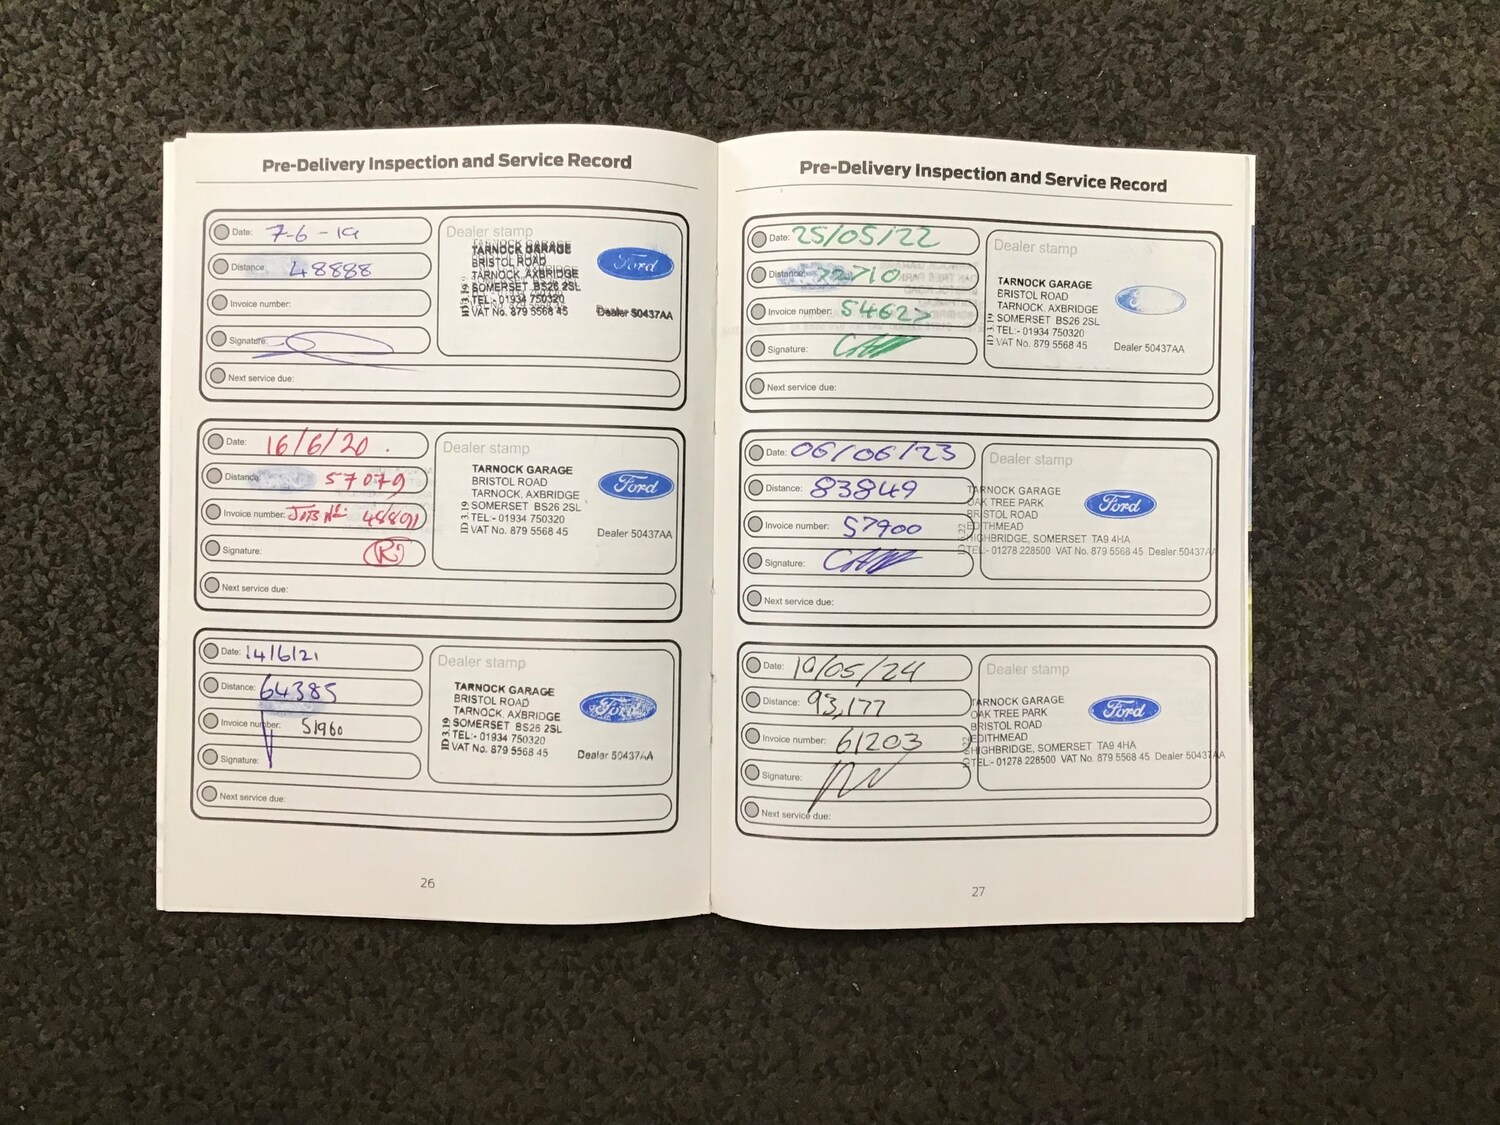 Pre-Delivery Inspection and Service Record
Date: 7-6-19
Distance: 48888
Invoice number:
Signature:
Next service due:
Dealer stamp
TARNOCK GARAGE
BRISTOL ROAD
TARNOCK, AXBRIDGE
SOMERSET BS26 2SL
TEL:- 01934 750320
VAT No. 879 5568 45
Ford
Dealer 50437AA
Date: 16/6/20
Distance: 57079
Invoice number: JOB Nº:
Signature:
Next service due:
Dealer stamp
TARNOCK GARAGE
BRISTOL ROAD
TARNOCK, AXBRIDGE
SOMERSET BS26 2SL
TEL:- 01934 750320
VAT No. 879 5568 45
Ford
Dealer 50437AA
Date: 14/6/21
Distance: 64385
Invoice number: 51960
Signature:
Next service due:
Dealer stamp
TARNOCK GARAGE
BRISTOL ROAD
TARNOCK, AXBRIDGE
SOMERSET BS26 2SL
TEL:- 01934 750320
VAT No. 879 5568 45
Ford
Dealer 50437AA
26
Pre-Delivery Inspection and Service Record
Date: 25/05/22
Distance: 72710
Invoice number: 54627
Signature:
Next service due:
Dealer stamp
TARNOCK GARAGE
BRISTOL ROAD
TARNOCK, AXBRIDGE
SOMERSET BS26 2SL
TEL:- 01934 750320
VAT No. 879 5568 45
Dealer 50437AA
Date: 06/06/23
Distance: 83849
Invoice number: 57900
Signature:
Next service due:
Dealer stamp
TARNOCK GARAGE
OAK TREE PARK
BRISTOL ROAD
EDITHMEAD
HIGHBRIDGE, SOMERSET TA9 4HA
TEL:- 01278 228500 VAT No. 879 5568 45 Dealer 50437AA
Ford
Date: 10/05/24
Distance: 93,177
Invoice number: 61203
Signature:
Next service due:
Dealer stamp
TARNOCK GARAGE
OAK TREE PARK
BRISTOL ROAD
EDITHMEAD
HIGHBRIDGE, SOMERSET TA9 4HA
TEL:- 01278 228500 VAT No. 879 5568 45 Dealer 50437AA
Ford
27